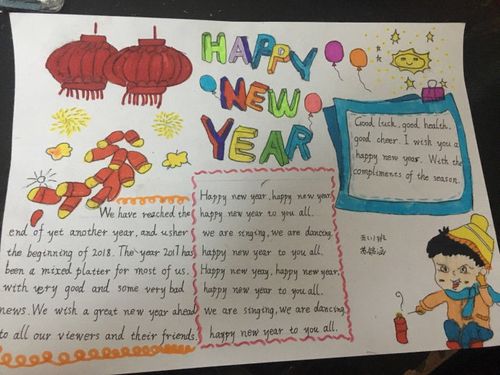 HAPPY
NEW
YEAR
Good luck, good health,
good cheer. I wish you a
happy new year. With the
compliments of the season.
We have reached the
end of yet another year, and usher
the beginning of 2018. The year 2017 has
been a mixed platter for most of us.
with very good and some very bad
news. We wish a great new year ahead
to all our viewers and their friends.
Happy new year, happy new year,
happy new year to you all.
we are singing, we are dancing,
happy new year to you all.
Happy new yeay, happy new year,
happy new year to you all.
we are singing, we are dancing
happy new year to you all.